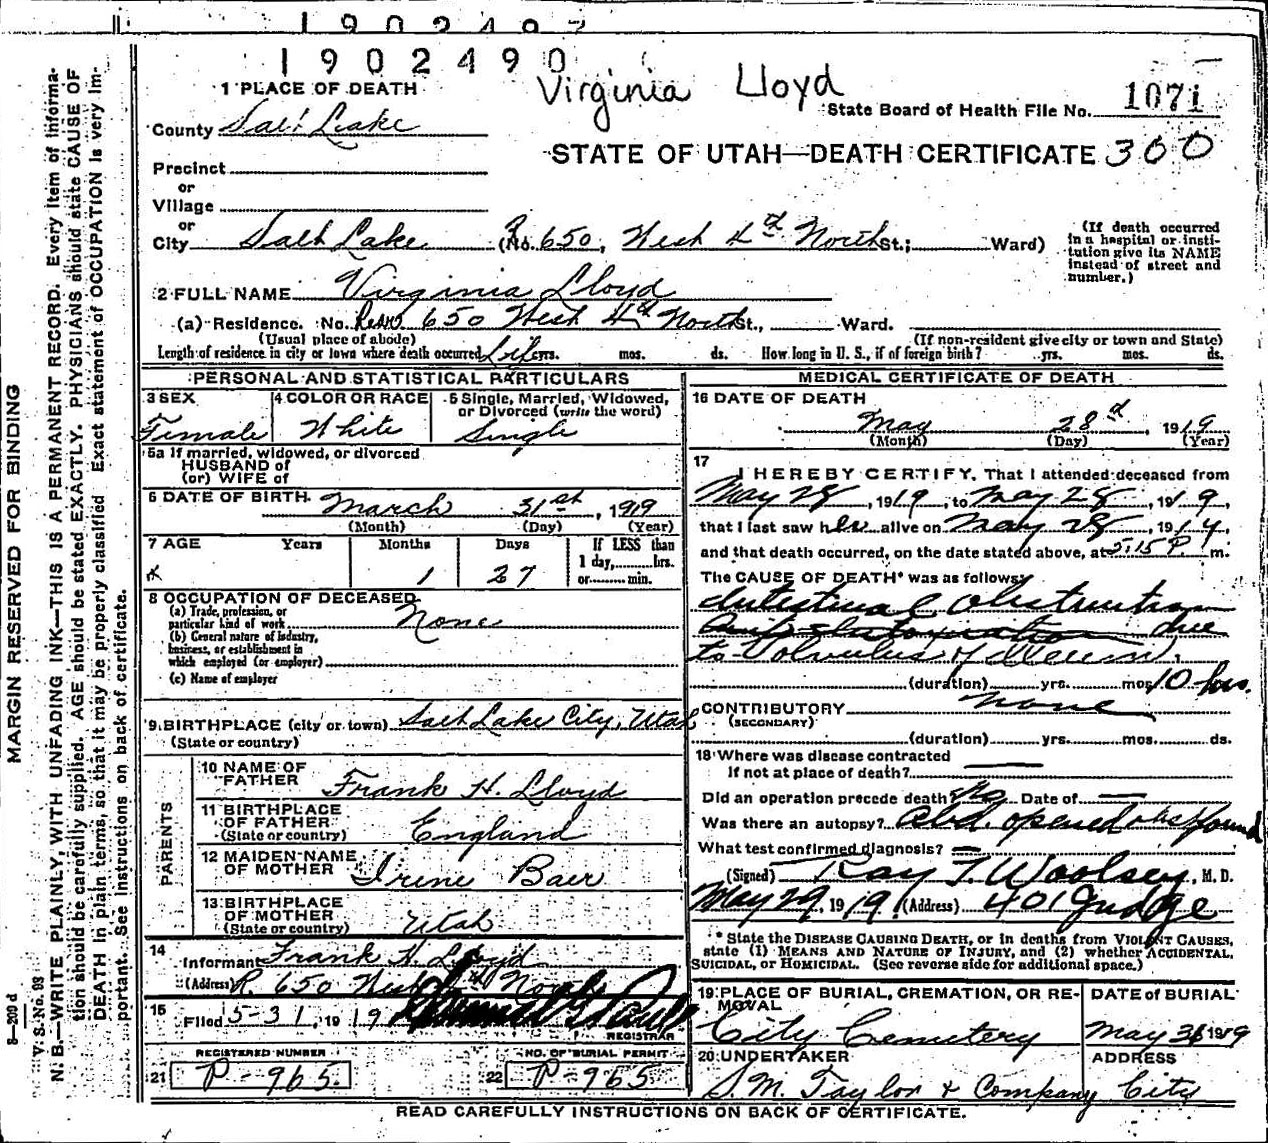 1902490
Virginia Lloyd
1 PLACE OF DEATH
State Board of Health File No. 1071
County Salt Lake
STATE OF UTAH—DEATH CERTIFICATE 300
Precinct
or
Village
or
City Salt Lake (No. R 650, West 4th North St.; Ward)
(If death occurred in a hospital or insti-
tution give its NAME
instead of street and
number.)
2 FULL NAME Virginia Lloyd
(a) Residence. No. Rear 650 West 4th North St., Ward.
(Usual place of abode)
(If non-resident give city or town and State)
Length of residence in city or town where death occurred Life yrs. mos. ds. How long in U. S., if of foreign birth? yrs. mos. ds.
PERSONAL AND STATISTICAL PARTICULARS
3 SEX
Female
4 COLOR OR RACE
White
5 Single, Married, Widowed,
or Divorced (write the word)
Single
5a If married, widowed, or divorced
HUSBAND of
(or) WIFE of
6 DATE OF BIRTH March 31st, 1919
(Month) (Day) (Year)
7 AGE Years Months Days If LESS than
1 day, hrs.
or min.
1 27
8 OCCUPATION OF DECEASED
(a) Trade, profession, or
particular kind of work None
(b) General nature of industry,
business, or establishment in
which employed (or employer)
(c) Name of employer
9 BIRTHPLACE (city or town) Salt Lake City, Utah
(State or country)
PARENTS
10 NAME OF
FATHER Frank H. Lloyd
11 BIRTHPLACE
OF FATHER England
(State or country)
12 MAIDEN NAME
OF MOTHER Irene Baer
13 BIRTHPLACE
OF MOTHER Utah
(State or country)
14
Informant Frank H. Lloyd
(Address) R 650 West 4th North
15
Filed 5-31, 1919
REGISTRAR
REGISTERED NUMBER
21 P-965
NO. OF BURIAL PERMIT
22 P-965
MEDICAL CERTIFICATE OF DEATH
16 DATE OF DEATH
May 28th, 1919
(Month) (Day) (Year)
17
I HEREBY CERTIFY, That I attended deceased from
May 28, 1919, to May 28, 1919,
that I last saw her alive on May 28, 1919,
and that death occurred, on the date stated above, at 5:15 P. m.
The CAUSE OF DEATH* was as follows:
Intestinal Obstruction
due
to Volvulus of Ileum.
(duration) yrs. mos. 10 hrs.
CONTRIBUTORY none
(SECONDARY)
(duration) yrs. mos. ds.
18 Where was disease contracted
if not at place of death?
Did an operation precede death? No Date of
Was there an autopsy? Abd. opened obst found
What test confirmed diagnosis?
(Signed) Ray T. Woolsey, M. D.
May 29, 1919 (Address) 401 Judge
* State the DISEASE CAUSING DEATH, or in deaths from VIOLENT CAUSES,
state (1) MEANS AND NATURE OF INJURY, and (2) whether ACCIDENTAL,
SUICIDAL, or HOMICIDAL. (See reverse side for additional space.)
19 PLACE OF BURIAL, CREMATION, OR RE-
MOVAL
City Cemetery
DATE OF BURIAL
May 1919
20 UNDERTAKER
S. M. Taylor & Company
ADDRESS
City
READ CAREFULLY INSTRUCTIONS ON BACK OF CERTIFICATE.
MARGIN RESERVED FOR BINDING
V. S. No. 93
N. B.—WRITE PLAINLY, WITH UNFADING INK—THIS IS A PERMANENT RECORD. Every item of informa-
tion should be carefully supplied. AGE should be stated EXACTLY. PHYSICIANS should state CAUSE OF
DEATH in plain terms, so that it may be properly classified. Exact statement of OCCUPATION is very im-
portant. See instructions on back of certificate.